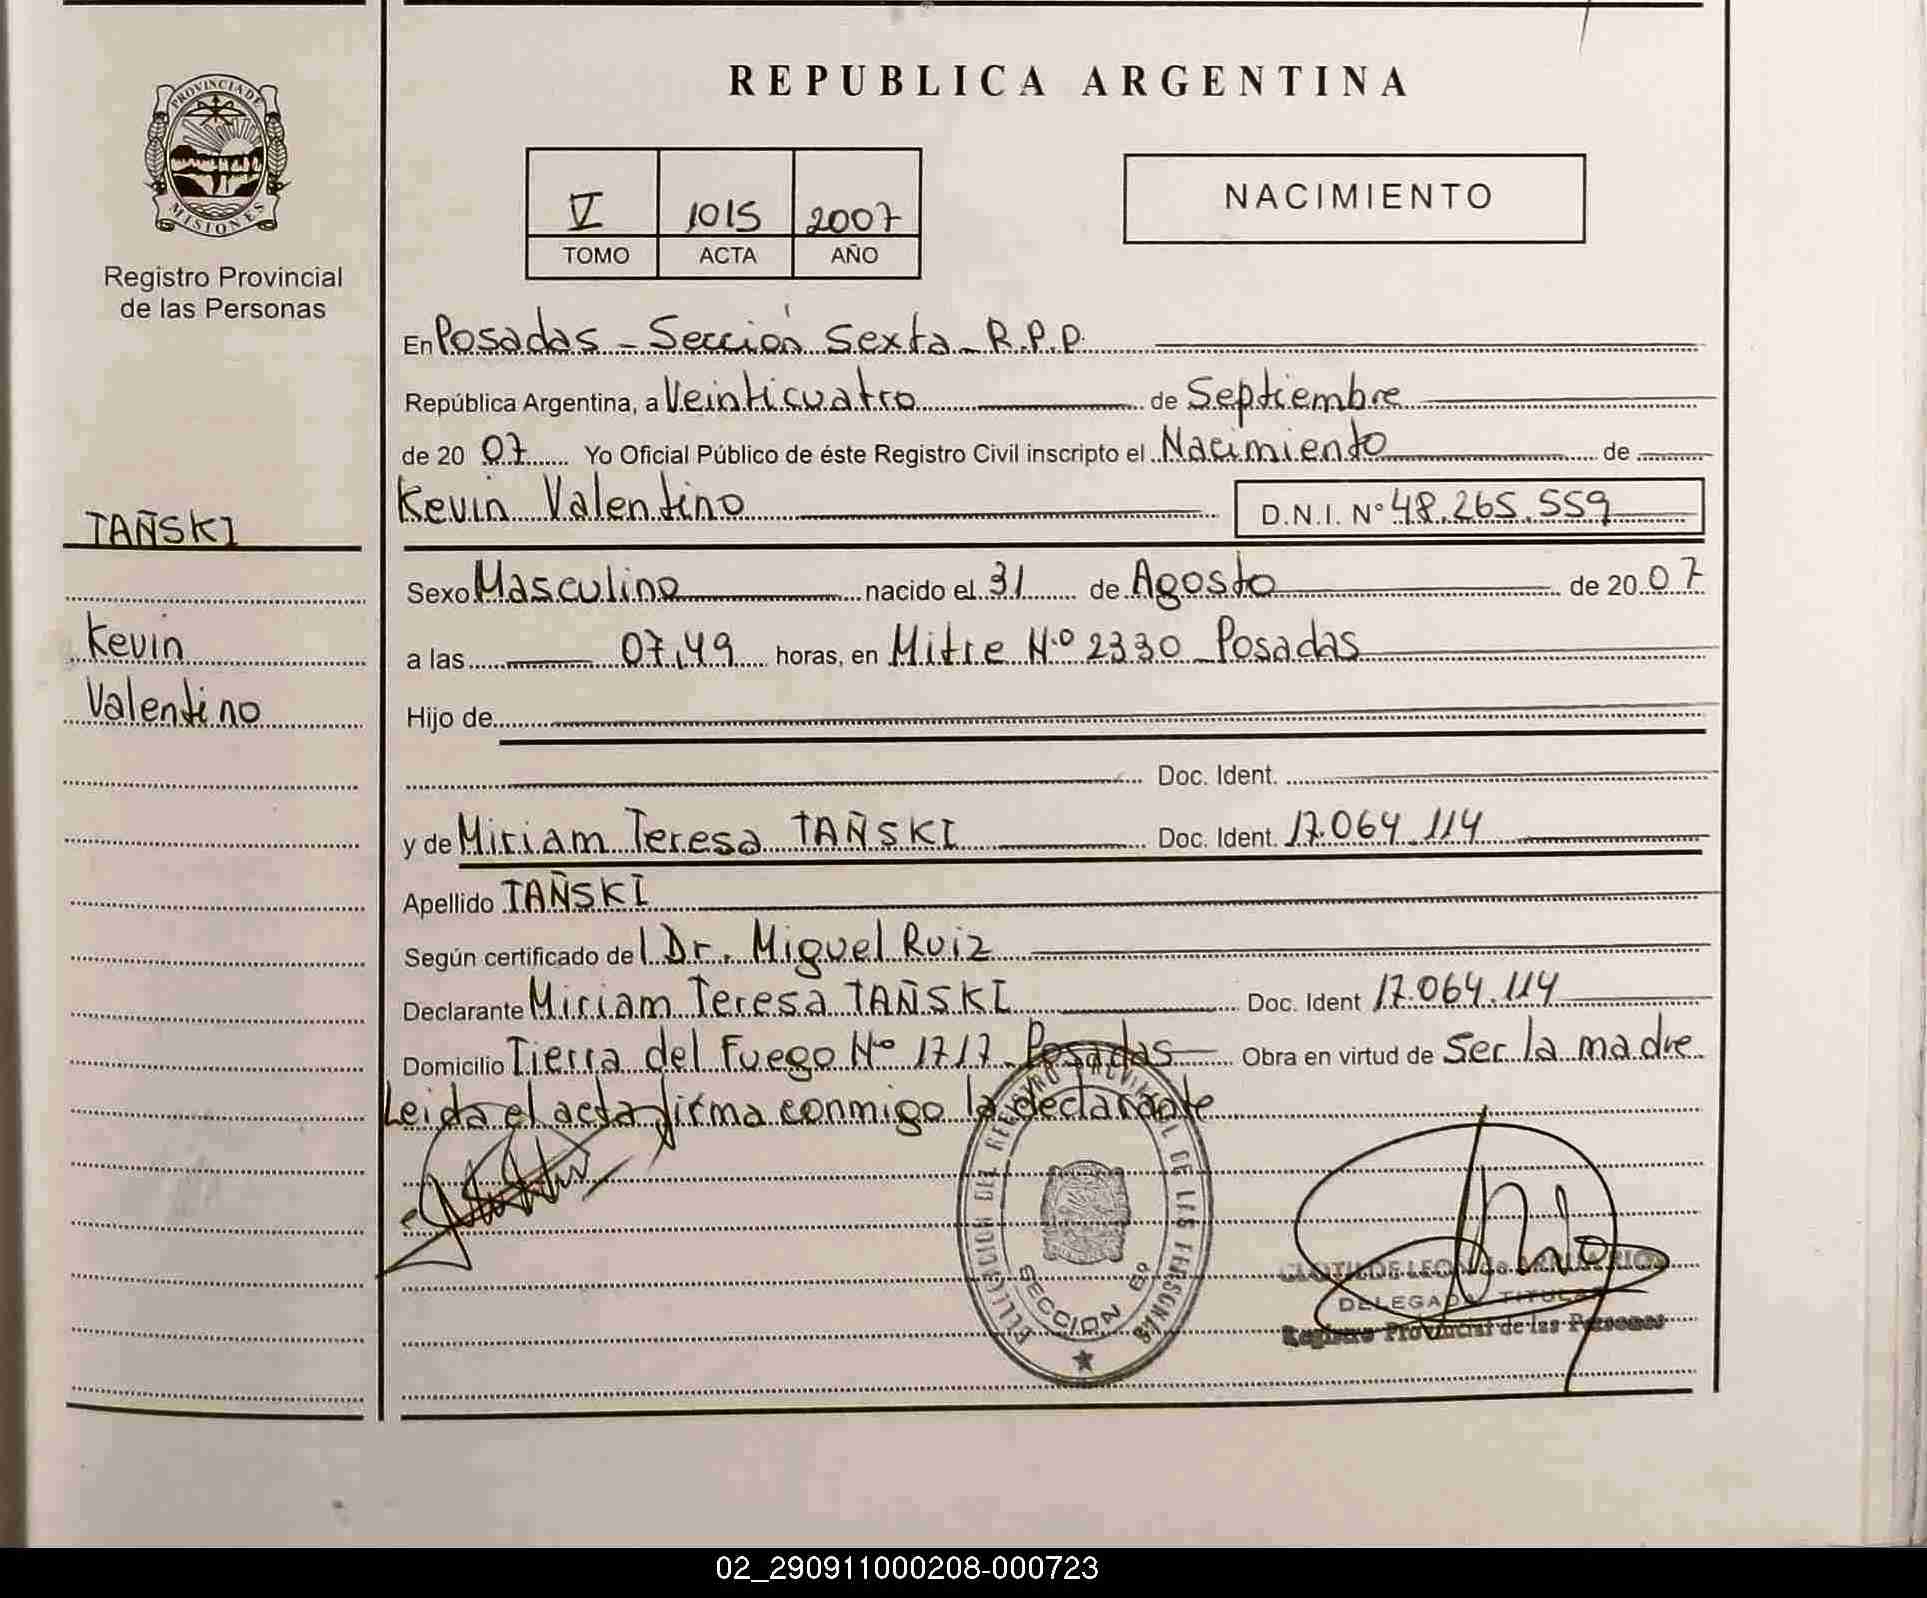 REPUBLICA ARGENTINA
PROVINCIA DE
MISIONES
Registro Provincial
de las Personas
V 1015 2007
TOMO ACTA AÑO
NACIMIENTO
En Posadas - Sección Sexta - R.P.P.
República Argentina, a Veinticuatro de Septiembre
de 20 07 Yo Oficial Público de éste Registro Civil inscripto el Nacimiento de
Kevin Valentino D.N.I. Nº 48.265.559
TAÑSKI
Kevin
Valentino
Sexo Masculino nacido el 31 de Agosto de 20 07
a las 07,49 horas, en Mitre Nº 2330 Posadas
Hijo de
Doc. Ident.
y de Miriam Teresa TAÑSKI Doc. Ident. 17.064.114
Apellido TAÑSKI
Según certificado del Dr. Miguel Ruiz
Declarante Miriam Teresa TAÑSKI Doc. Ident 17.064.114
Domicilio Tierra del Fuego Nº 1717 Posadas Obra en virtud de Ser la madre
Leida el acta firma conmigo la declarante
REGISTRO PROVINCIAL DE LAS PERSONAS
SECCION 6º
CLOTILDE LEON de
DELEGADA TITULAR
Registro Provincial de las Personas
02_290911000208-000723